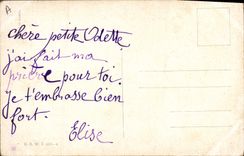 A
chère petite Odette
j'ai fait ma
prière pour toi.
je t'embrasse bien
fort.
Elise